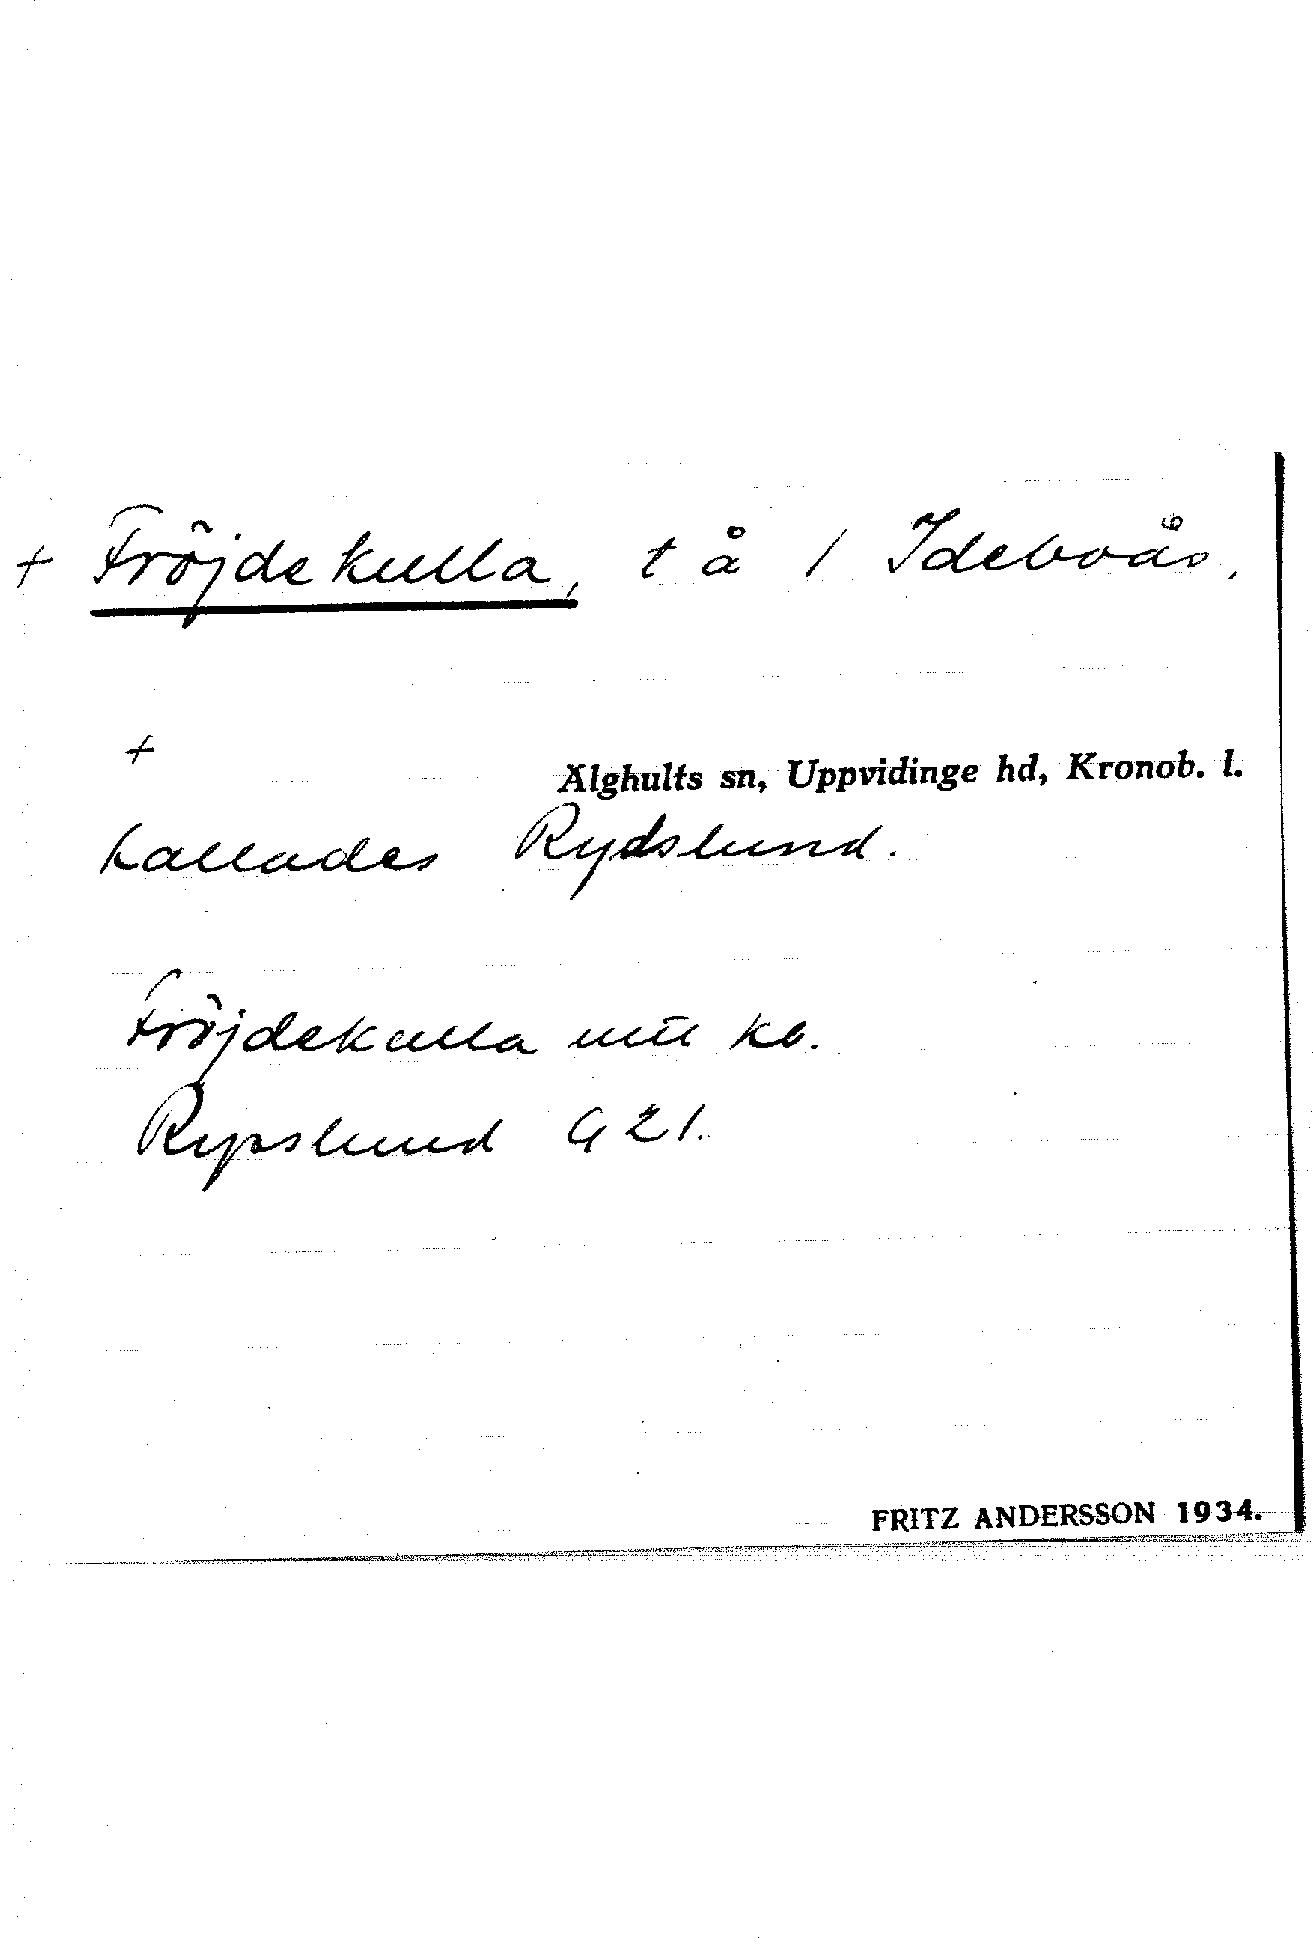 + Fröjdekulla, t å 1 Ideboås.
+
Älghults sn, Uppvidinge hd, Kronob. l.
kallades Rydslund.
Fröjdekulla kb.
Rypslund G 21.
FRITZ ANDERSSON 1934.